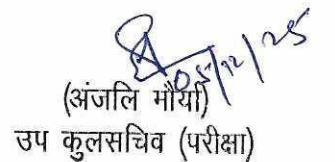 05/12/25
(अंजलि मौर्या)
उप कुलसचिव (परीक्षा)